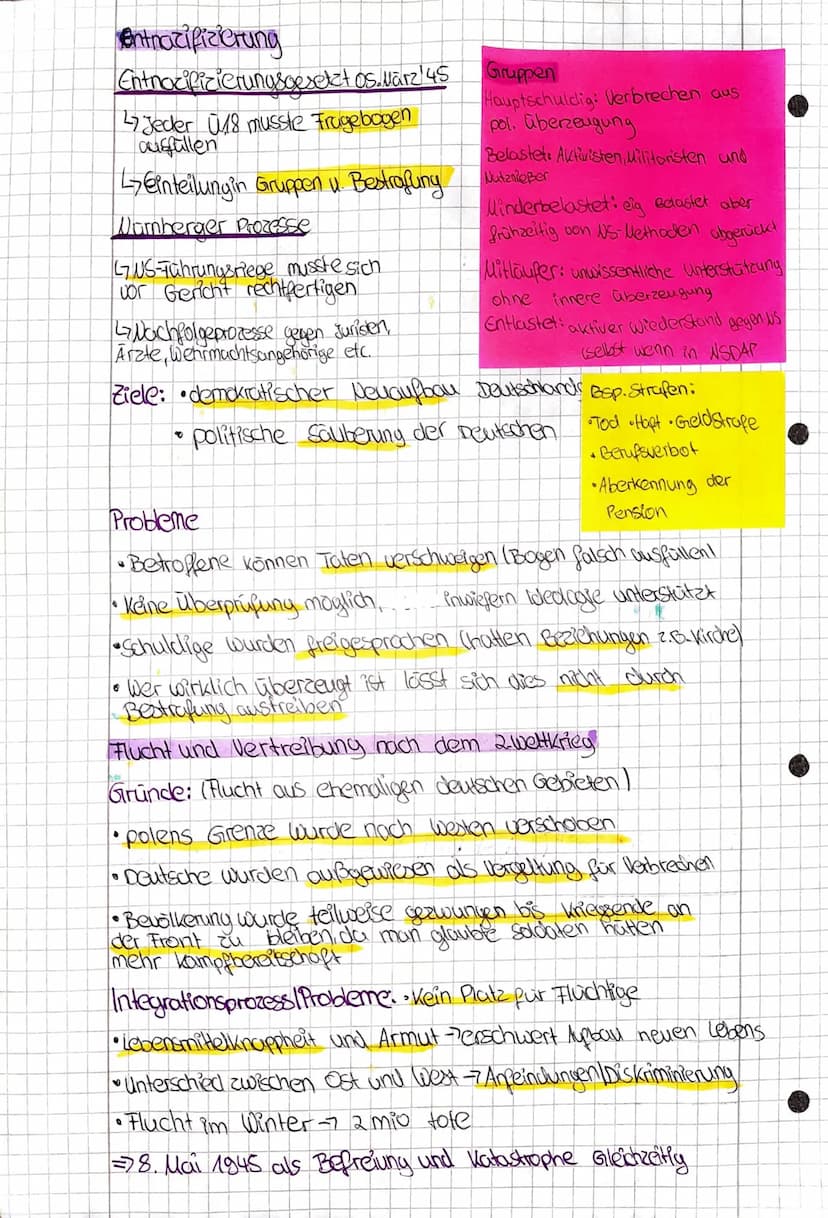 Entnazifizierung
Entnazifizierungsgesetzt 05.März'45
↳ Jeder Ü18 musste Fragebogen
ausfüllen
↳ Einteilung in Gruppen u. Bestrafung
Nürnberger Prozesse
↳ NS-Führungsriege musste sich
vor Gericht rechtfertigen
↳ Nachfolgeprozesse gegen Juristen,
Ärzte, Wehrmachtsangehörige etc.
Gruppen
Hauptschuldig: Verbrechen aus
pol. Überzeugung
Belastet: Aktivisten, Militaristen und
Nutznießer
Minderbelastet: eig Belastet aber
frühzeitig von NS-Methoden abgerückt
Mitläufer: unwissentliche Unterstützung
ohne innere Überzeugung
Entlastet: aktiver Wiederstand gegen NS
(selbst wenn in NSDAP
Ziele: • demokratischer Neuaufbau Deutschlands
• politische Säuberung der Deutschen
Bsp. Strafen:
• Tod • Haft • Geldstrafe
• Berufsverbot
• Aberkennung der
Pension
Probleme
• Betroffene können Taten verschweigen (Bogen falsch ausfüllen)
• Keine Überprüfung möglich, inwiefern Ideologie unterstützt
• Schuldige wurden freigesprochen (hatten Beziehungen z.B. Kirche)
• Wer wirklich überzeugt ist lässt sich dies nicht durch
Bestrafung austreiben
Flucht und Vertreibung nach dem 2.Weltkrieg
Gründe: (Flucht aus ehemaligen deutschen Gebieten)
• polens Grenze wurde nach Westen verschoben
• Deutsche wurden außgewiesen als Vergeltung für Verbrechen
• Bevölkerung wurde teilweise gezwungen bis Kriegsende an
der Front zu bleiben, da man glaubte Soldaten hätten
mehr Kampfbereitschaft
Integrationsprozess/Probleme: • Kein Platz für Flüchtige
• Lebensmittelknappheit und Armut → erschwert Aufbau neuen Lebens
• Unterschied zwischen Ost und West → Anfeindungen/Diskriminierung
• Flucht im Winter → 2 mio tote
⇒ 8. Mai 1945 als Befreiung und Katastrophe Gleichzeitig